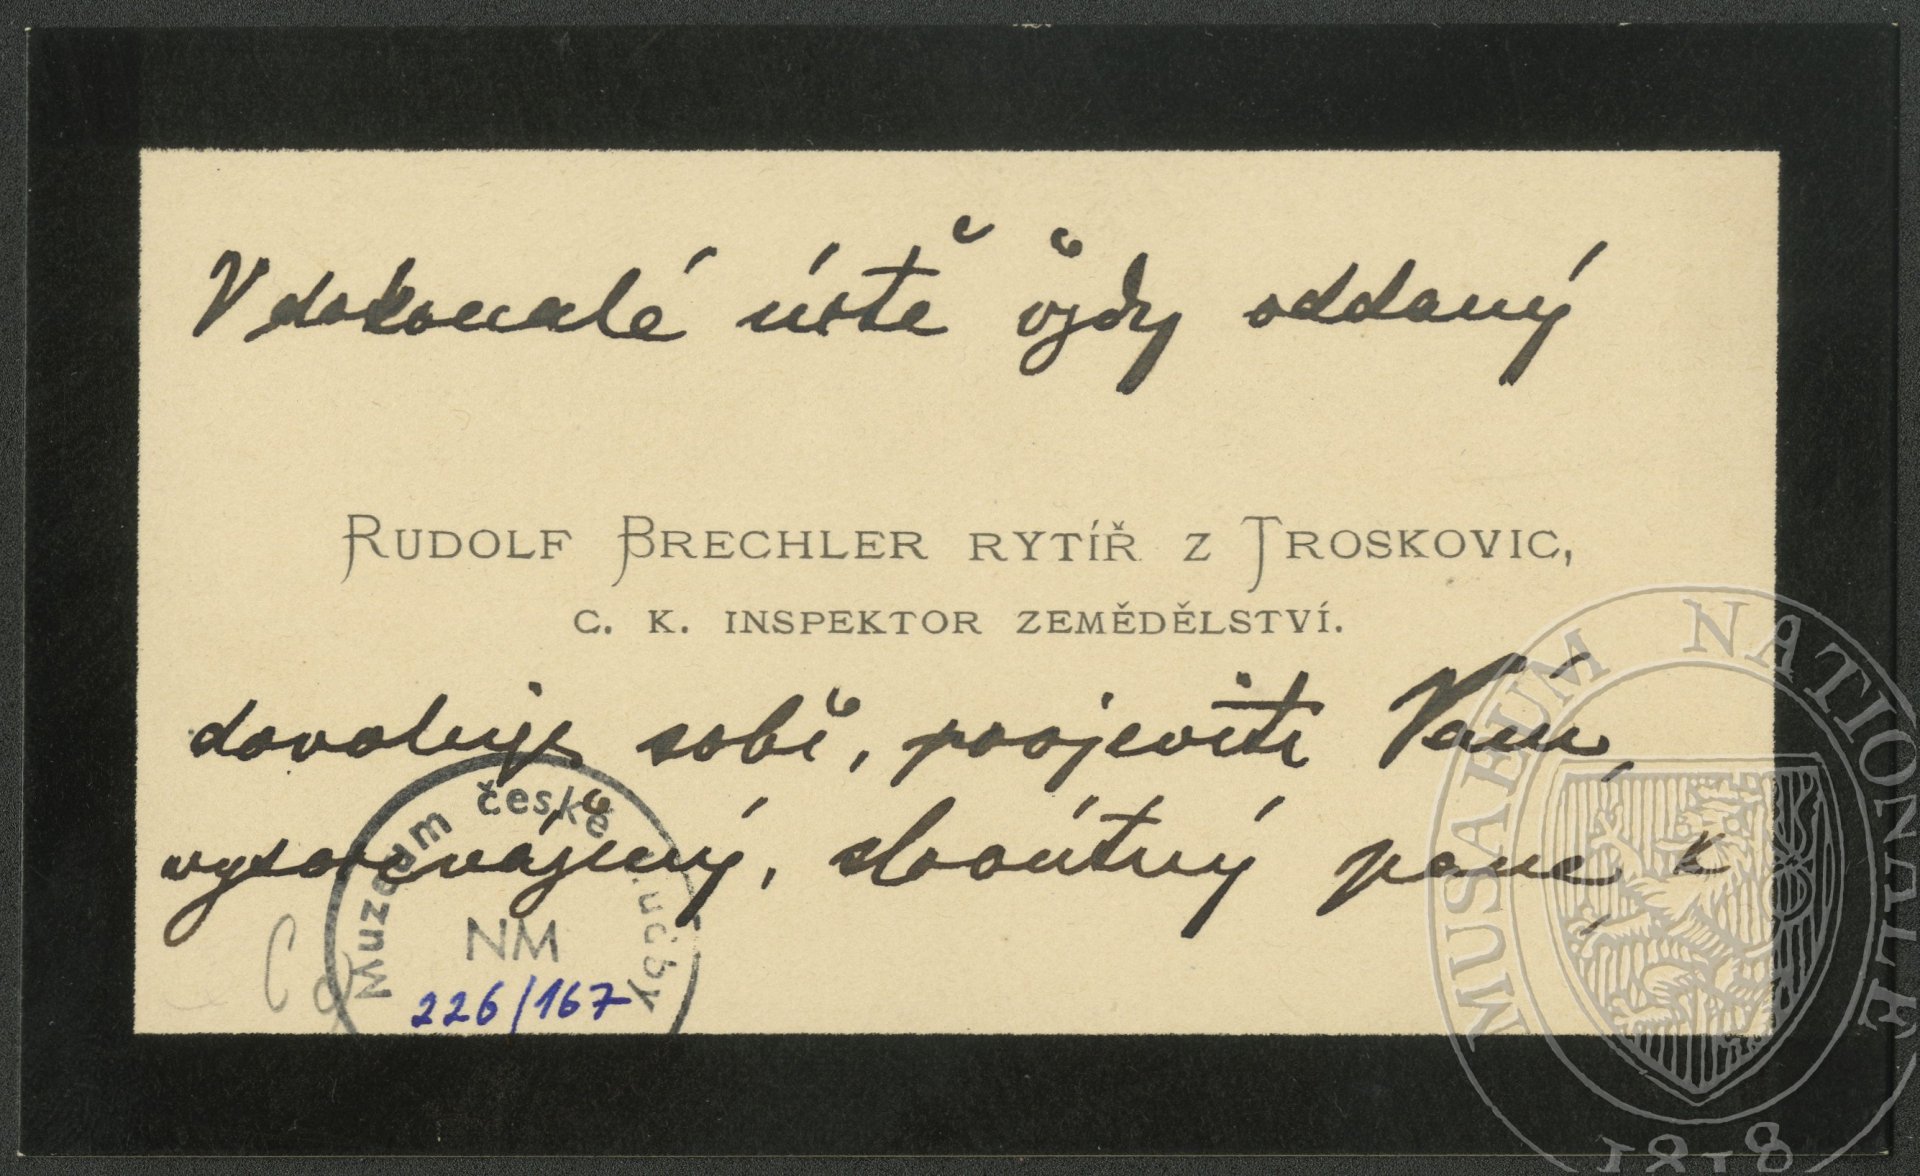 V dokonalé úctě vždy oddaný
RUDOLF BRECHLER RYTÍŘ Z TROSKOVIC,
C. K. INSPEKTOR ZEMĚDĚLSTVÍ.
dovoluje sobě, projeviti Vám,
vysocevážený, slovutný pane, k
Muzeum české hudby
NM
226/167
MUSAEUM NATIONALE
1818